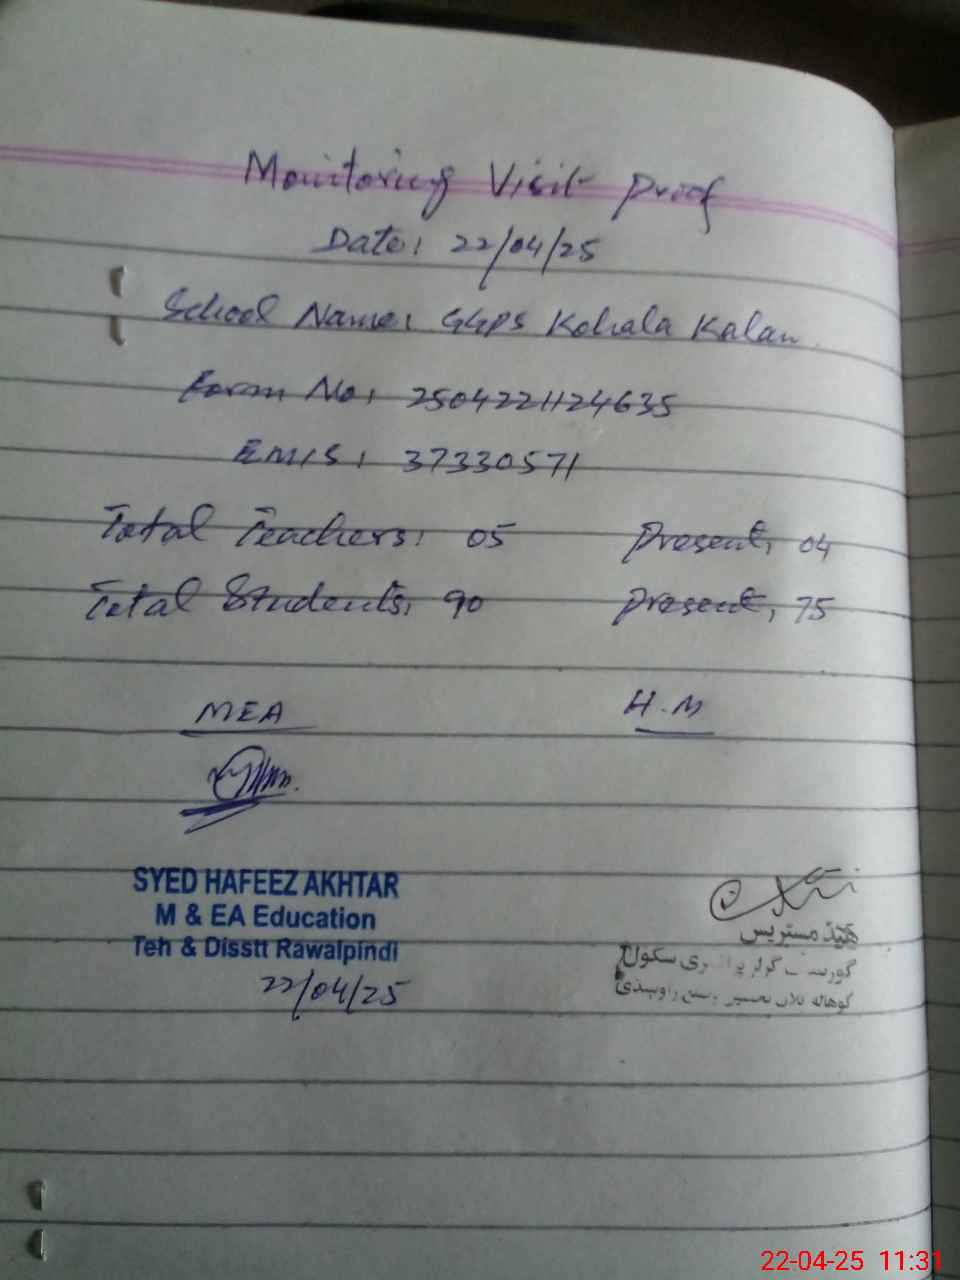 Monitoring Visit Proof
Date: 22/04/25
School Name: GGPS Kohala Kalan
Form No: 2504221124635
EMIS: 37330571
Total Teachers: 05 Present: 04
Total Students: 90 Present: 75
MEA H.M
SYED HAFEEZ AKHTAR
M & EA Education
Teh & Disstt Rawalpindi
22/04/25
ھیڈ مسٹریس
گورنمنٹ گرلز پرائمری سکول
کوھالہ کلاں تحصیل وضلع راولپنڈی
22-04-25 11:31